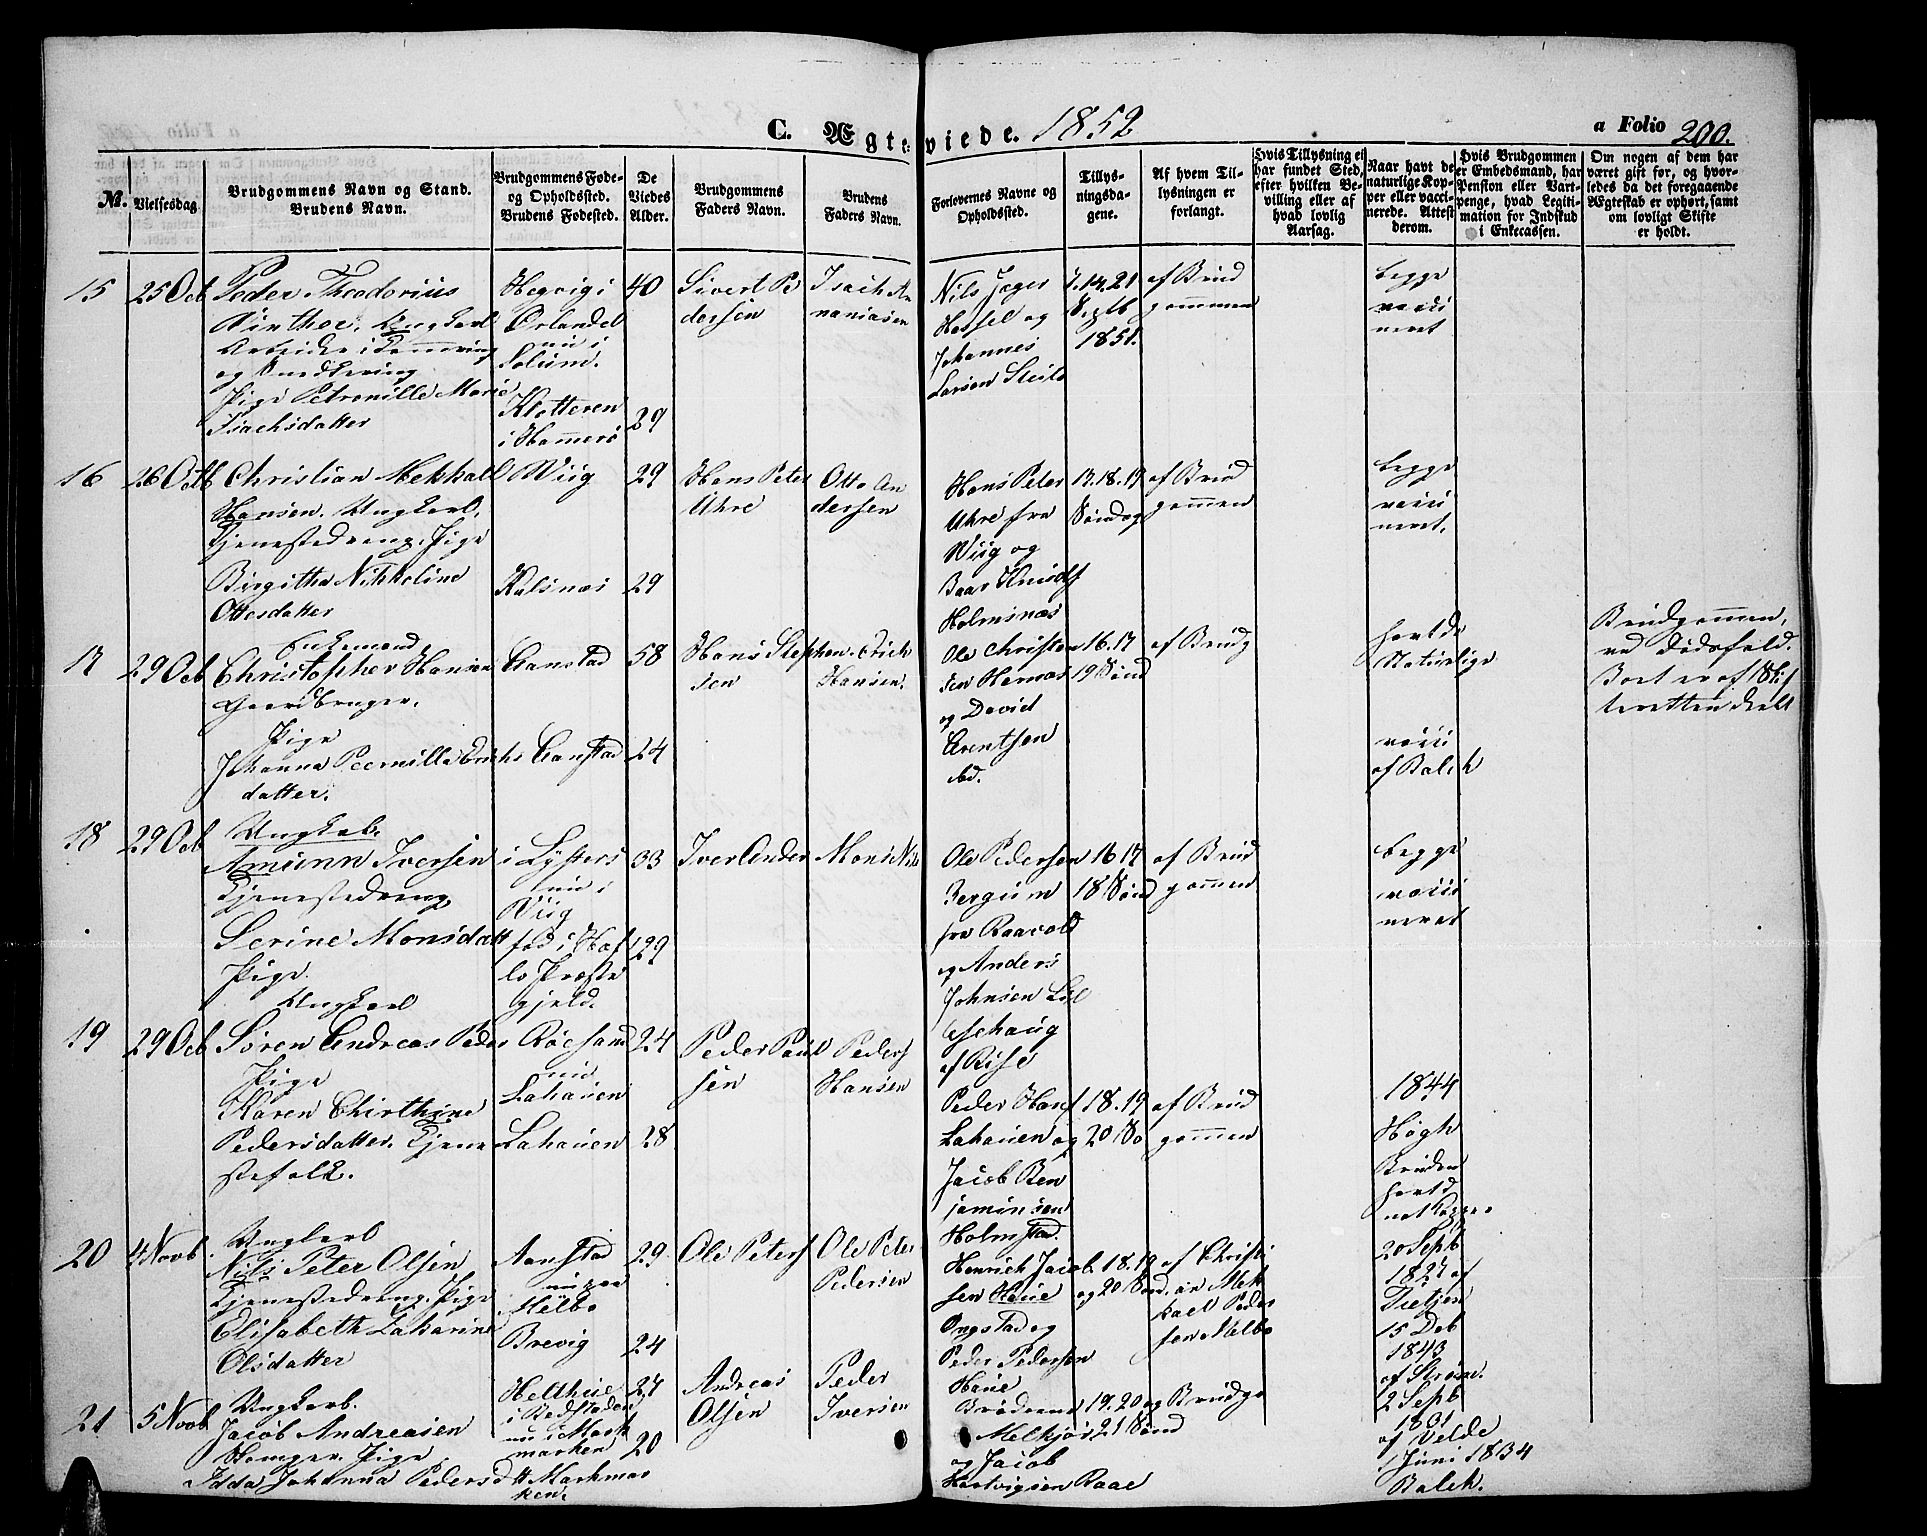 C. Ægteviede. 1852
a Folio 200.
№.
Vielsesdag
Brudgommens Navn og Stand.
Brudens Navn.
Brudgommens Føde-
og Opholdssted.
Brudens Fødested.
De
Viedes
Alder.
Brudgommens
Faders Navn.
Brudens
Faders Navn.
Forlovernes Navne og
Opholdssted.
Tillys-
ningsda-
gene.
Af hvem Til-
lysningen er
forlangt.
Hvis Tillysning ei
har fundet Sted,
efter hvilken Be-
villing eller af
hvad lovlig
Aarsag.
Naar havt de
naturlige Kop-
per eller vacci-
nerede. Attest
derom.
Hvis Brudgommen
er Embedsmand, har
Pension eller Vart-
penge, hvad Legiti-
mation for Indskud
i Enkecassen.
Om nogen af dem har
været gift før, og hvor-
ledes da det foregaaende
Ægteskab er ophørt, samt
om lovligt Skifte
er holdt.
15
25 Oct
Peder Theodorius
Winther, Ungkarl
og Snedkering
Pige Petronille Marie
Isachsdatter
Hegvig i
Ørlandet
nu i
Solum.
Klotteren
i Hamerø
40
29
Sivert Pe
dersen
Isach An
naniasen
Nils Jæger
Hassel og
Johannes
Larsen Steilo
7.14.21
Septb
1851.
af Brud
gommen
begge
vacci
neret
16
26 Octb
Christian Mekkal
Hansen. Ungkarl.
Tjenestedreng. Pige
Birgitha Nikkoline
Ottesdatter
Wiig
Kalsnæs
29
29
Hans Peter
Uhre
Otto An
dersen
Hans Peter
Uhre fra
Wiig og
Baar Knudsf
Holmsnæs
13.18.19
Søndag
af Brud
gommen
begge
vacci
neret.
17
29 Oct
Enkemand
Christopher Hansen
Gaardbruger.
Pige
Johanna Pernilla Erichs
datter.
Aanstad
Aanstad
58
24
Hans Stephen
sen
Erich
Hansen.
Ole Christen
sen Hornæs
og David
Arentsen
ibd.
16.17
19 Sønd
af Brudg
havt de
Naturlige
vacci
af Balch
Brudgommen,
ved Dødsfald.
Boet er af Skif
teretten deelt
18
29 Oct
Ungkarl.
Amunn Iversen
Tjenestedreng
Serine Monsdatt
Pige.
i Lyster
nu i
Wiig
fød i Haf
lo Præste
gjeld.
33
29
Iver Ander
Mons Nils
Ole Pedersen
Bergum
fra Raavold
og Anders
Johnsen Lil
leshaug
af Rise
16 17
18 Sønd
af Brud
gommen
begge
vacci
neret
19
29 Oct
Ungkarl
Søren Andreas Peders
Pige
Karen Chirthine
Pedersdatter. Tjene
stefolk.
Røesand
nu
Lahauen
Lahauen
24
28
Peder Paul
sen
Peder
Hansen
Peder Hans
Lahauen og
Jacob Ben
jaminsen
Holmstad.
18.19
20 So
af Brud
gommen
1844
Høgh
Bruden
havt d
nat Kopper
20
4 Novb.
Ungkarl
Nils Peter Olsen
Tjenestedreng. Pige
Elisabeth Zakarine
Olsdatter
Aanstad
nu paa
Melbo
Brevig
29.
24
Ole Peters
Ole Peter
Pedersen
Henrich Jacob
sen Haue
Ongstad og
Peder Pedersen
Haue
18.19
og 20 Sønd.
af Christi
an Mek
kael Peder
sen Melbo
20 Sept
1827 af
Tietjen
15 Deb
1843
af Strøm.
21
5 Novb
Ungkarl.
Jacob Andreasen
Homger. Pige
Idda Johanna Pedersdtt
Helthue
i Bedstaden
nu i Mark
marken
Markmar
ken.
27
20
Andreas
Olsen
Peder
Iversen
Brødrene
Melkjør
og Jacob
Hartvigsen Raae
19.20 og
21 Sønd
Brudgo
2 Sept
1831
af Velde
1 Juni 1834
Balch.